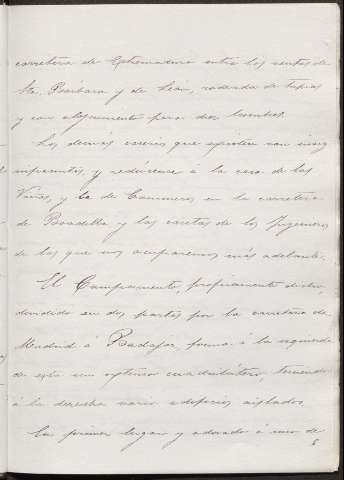 carretera de Extremadura entre las ventas de
Sta. Bárbara y de León, rodeada de tapias
y con alojamiento para dos hombres.
Los demás caseríos que existen son insig
nificantes, y redúcense á la casa de las
Viñas, y la de Camineros en la carretera
de Boadilla y las casetas de los Ingenieros
de las que nos ocuparemos más adelante.
El Campamento, propiamente dicho,
dividido en dos partes por la carretera de
Madrid á Badajoz, forma á la izquierda
de esta un extenso cuadrilátero, teniendo
á la derecha varios edificios aislados.
En primer lugar y adosado á uno de